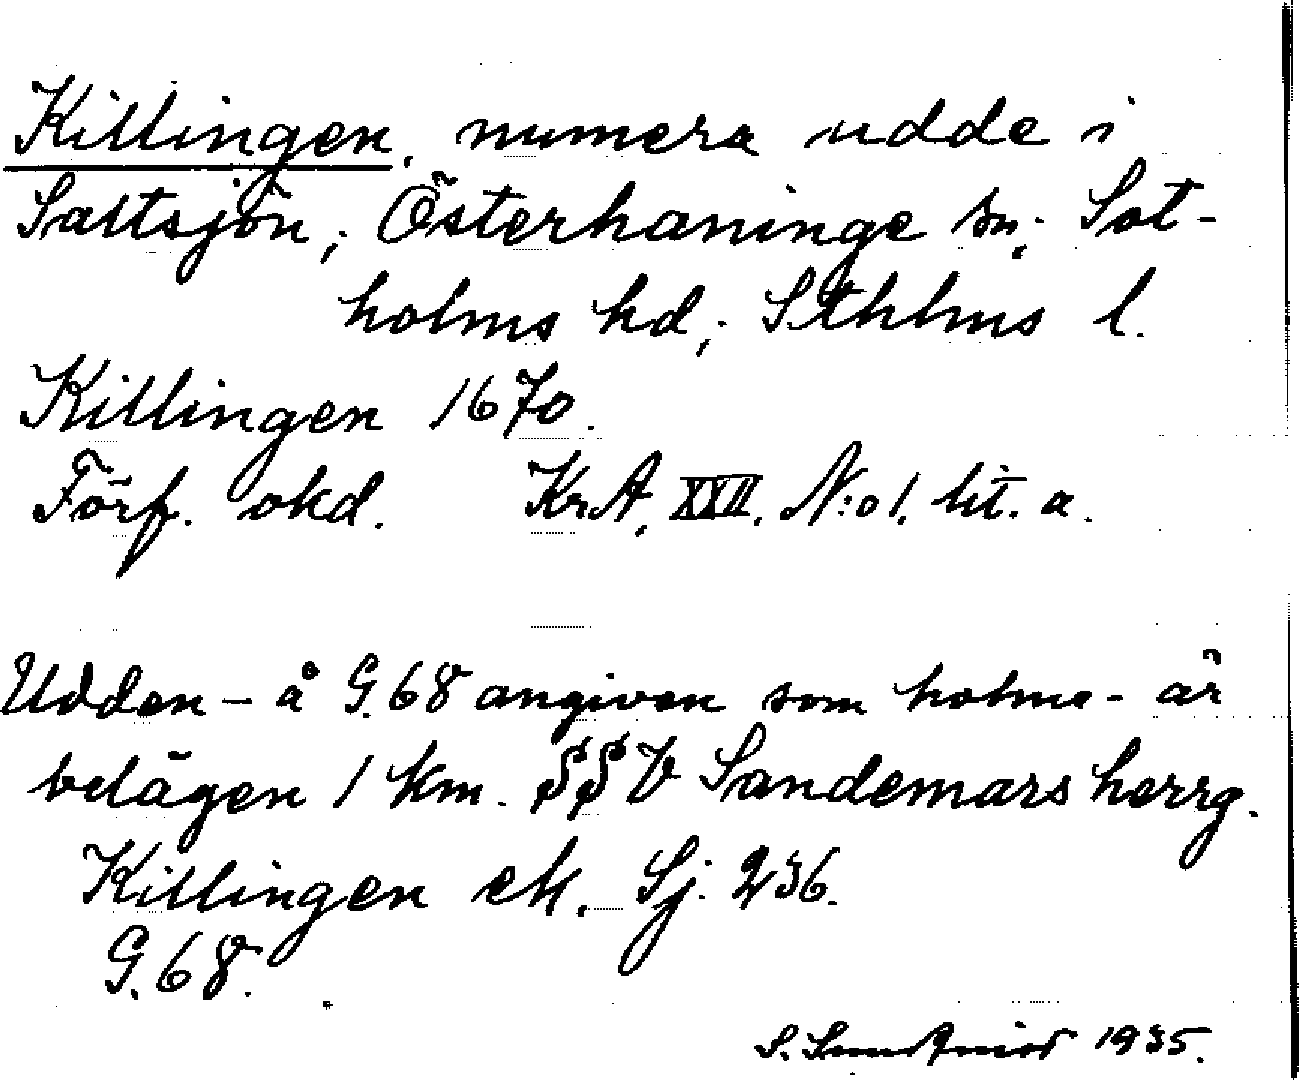 Killingen, numera udde i
Saltsjön, Österhaninge sn, Sot-
holms hd, Sthlms l.
Killingen 1670.
Förf. okd. KrA, XXII. N:o 1. lit. a.
Udden - å G. 68 angiven som holme - är
belägen 1 km. SSV Sandemars herrg.
Killingen ek. Sj. 236.
G. 68.
S. 1935.